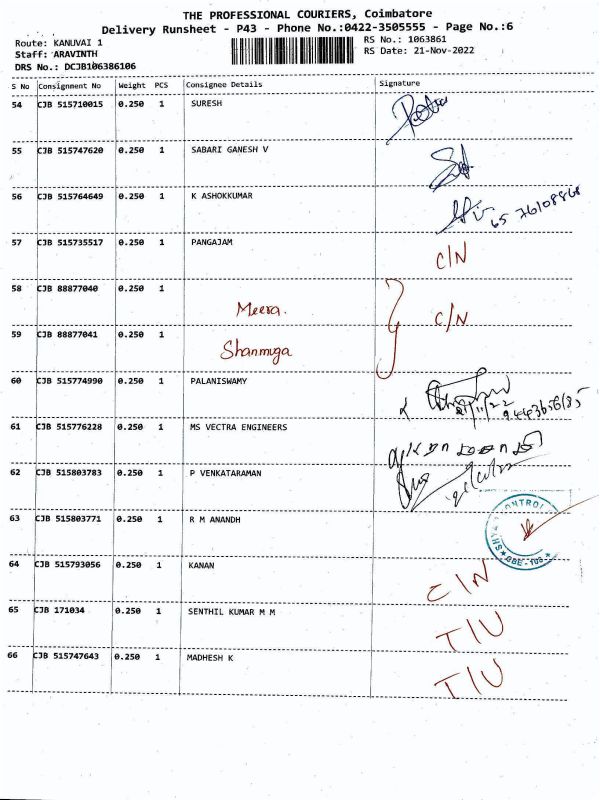 THE PROFESSIONAL COURIERS, Coimbatore
Delivery Runsheet - P43 - Phone No.:0422-3505555 - Page No.:6
Route: KANUVAI 1 RS No.: 1063861
Staff: ARAVINTH RS Date: 21-Nov-2022
DRS No.: DCJB106386106
S No Consignment No Weight PCS Consignee Details Signature
54 CJB 515710015 0.250 1 SURESH
55 CJB 515747620 0.250 1 SABARI GANESH V
56 CJB 515764649 0.250 1 K ASHOKKUMAR
57 CJB 515735517 0.250 1 PANGAJAM C/N
58 CJB 88877040 0.250 1 Meera. C/N
59 CJB 88877041 0.250 1 Shanmuga
60 CJB 515774990 0.250 1 PALANISWAMY
61 CJB 515776228 0.250 1 MS VECTRA ENGINEERS
62 CJB 515803783 0.250 1 P VENKATARAMAN
63 CJB 515803771 0.250 1 R M ANANDH
64 CJB 515793056 0.250 1 KANAN C/N
65 CJB 171034 0.250 1 SENTHIL KUMAR M M T/U
66 CJB 515747643 0.250 1 MADHESH K T/U